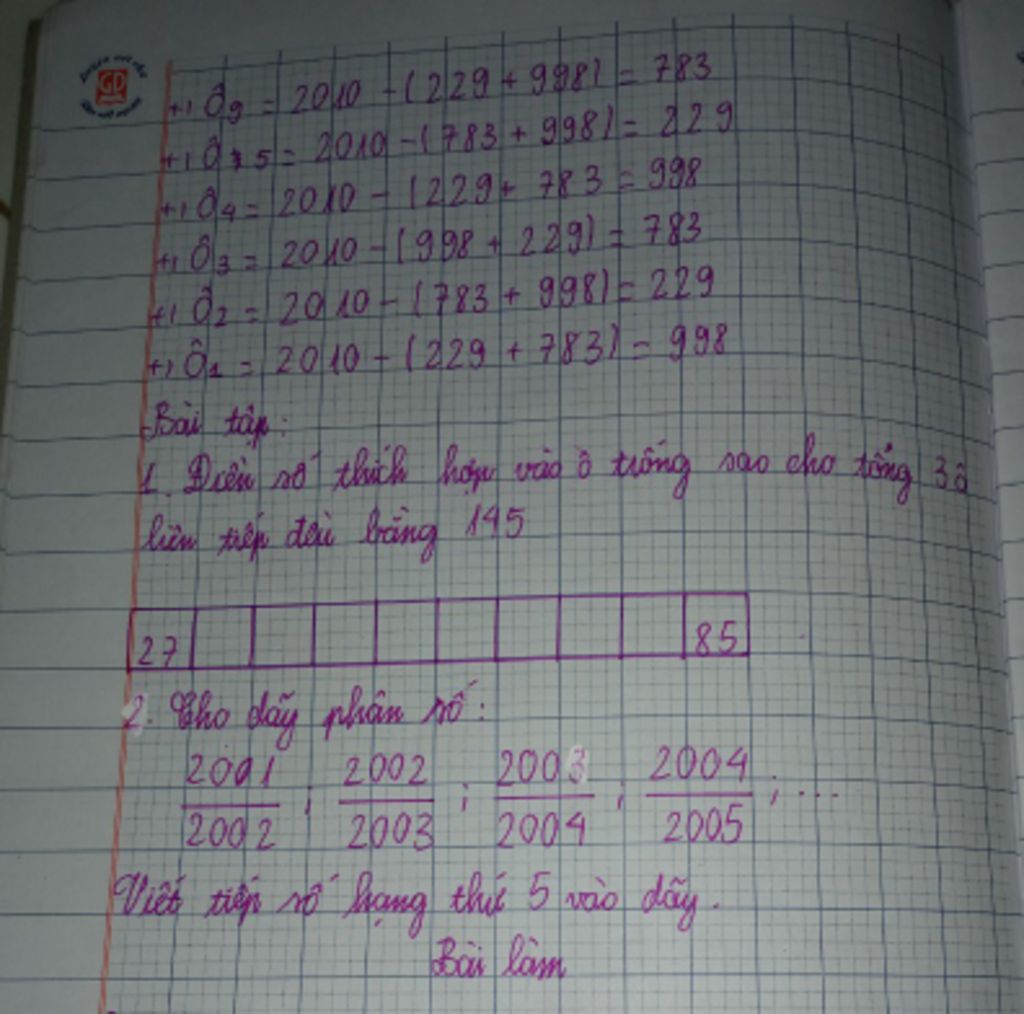 +, Ô9 = 2010 - (229 + 998) = 783
+, Ô5 = 2010 - (783 + 998) = 229
+, Ô4 = 2010 - (229 + 783 = 998
+, Ô3 = 2010 - (998 + 229) = 783
+, Ô2 = 2010 - (783 + 998) = 229
+, Ô1 = 2010 - (229 + 783) = 998
Bài tập:
1. Điền số thích hợp vào ô trống sao cho tổng 3 ô
liên tiếp đều bằng 145
27 85
2. Cho dãy phân số:
2001/2002 ; 2002/2003 ; 2003/2004 ; 2004/2005 ; ...
Viết tiếp số hạng thứ 5 vào dãy.
Bài làm